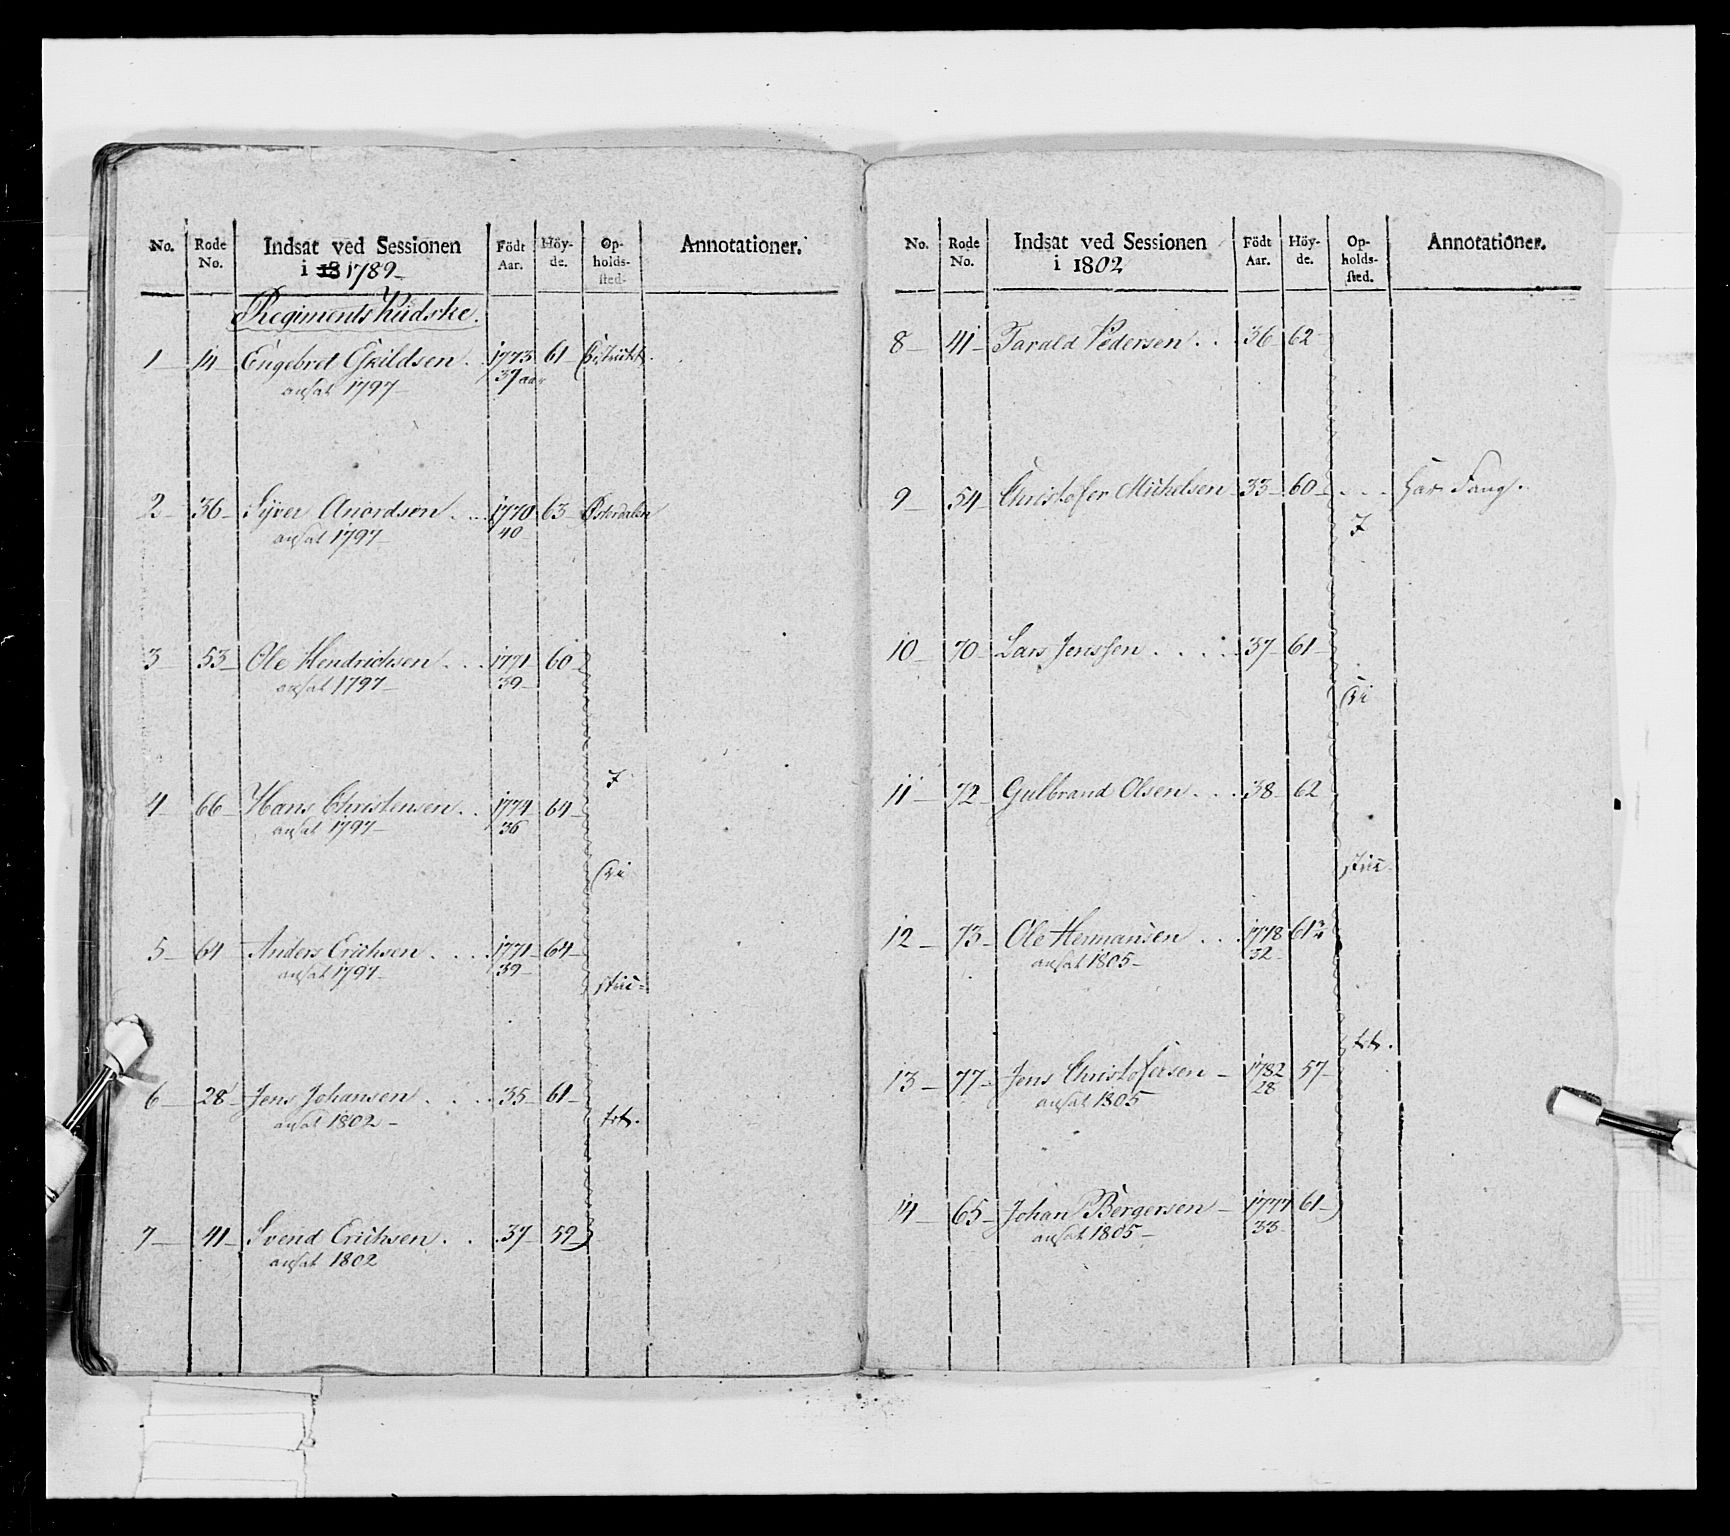 No. Rode No. Indsat ved Sessionen i 1789 Födt Aar. Höyde. Opholdssted. Annotationer.
Regiments Kudske.
1 14 Engebret Eskildsen . 1773 61
ansat 1797 37 aar
2 36 Syver Anordsen . . . 1770 63 Østerdalen
ansat 1797 40
3 53 Ole Hendrichsen . . . 1771 60
ansat 1797 39
7
4 66 Hans Christensen . . 1774 64
ansat 1797 36
5 64 Anders Erichsen . . . . 1771 64
ansat 1797 39
6 28 Jens Johansen . . . . 35 61
ansat 1802
7 41 Svend Erichsen . . . 37 59
ansat 1802
No. Rode No. Indsat ved Sessionen i 1802 Födt Aar. Höyde. Opholdssted. Annotationer.
8 41 Tarald Pedersen . . 36 62
9 54 Christofer Michelsen 33 60 . . .
10 70 Lars Jenssen . . . . . 37 61
11 72 Gulbrand Olsen . . . 38 62
12 73 Ole Hermansen . . . 1778 61¾
ansat 1805 32
13 77 Jens Christofersen 1782 57
ansat 1805 28
14 65 Johan Bergersen 1777 61
ansat 1805 33